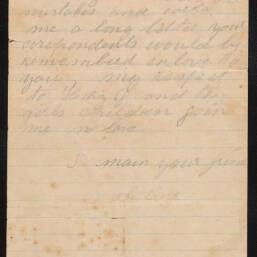 mistakes and
me a long letter your
corespondents would by
remembered in love to
you, my respect
to and the
children join
me n love
main your friend